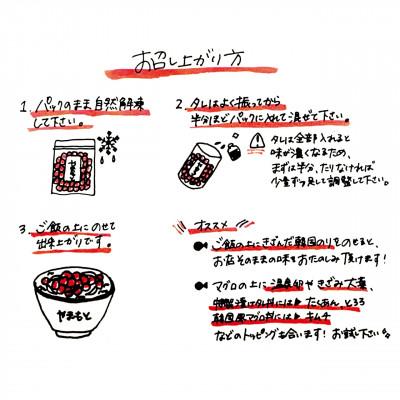 お召し上がり方
1. パックのまま自然解凍
して下さい。
2. タレはよく振ってから
半分ほどパックに入れて混ぜて下さい。
タレは全部入れると
味が濃くなるため、
まずは半分、たりなければ
少量ずつ足して調整して下さい。
3. ご飯の上にのせて
出来上がりです。
やまもと
オススメ
ご飯の上にきざんだ韓国のりをのせると、
お店そのままの味をおたのしみ頂けます!
マグロの上に温泉卵やきざみ大葉、
特製漬けタレ丼には▶たくあん、とろろ
韓国風マグロ丼には▶キムチ
などのトッピングも合います! お試し下さい